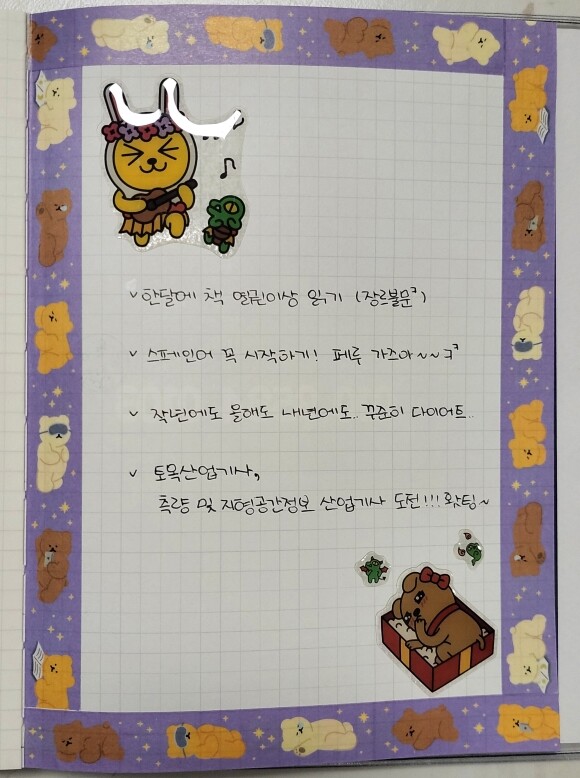 ✓ 한달에 책 열권이상 읽기 (장르불문ㅋ)
✓ 스페인어 꼭 시작하기! 페루 가즈아~~ㅋㅋ
✓ 작년에도 올해도 내년에도.. 꾸준히 다이어트..
✓ 토목산업기사,
측량 및 지형공간정보 산업기사 도전!!! 홧팅~